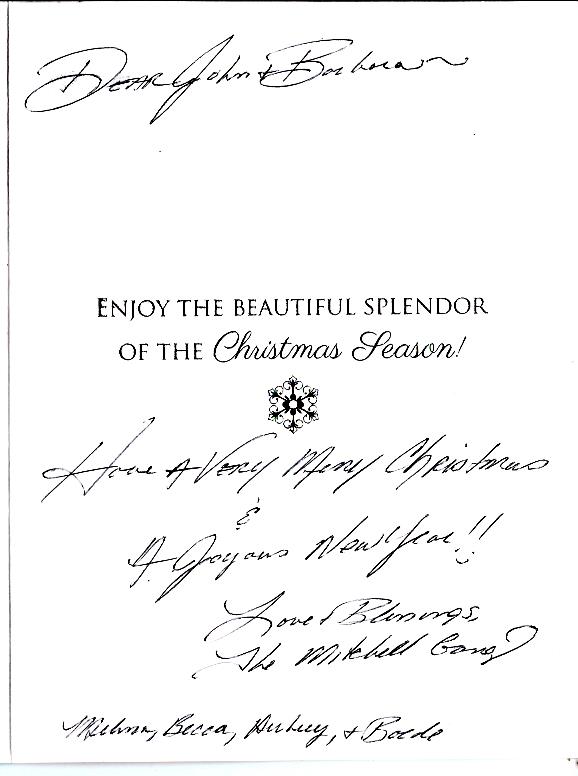 Dear John & Barbara
ENJOY THE BEAUTIFUL SPLENDOR
OF THE Christmas Season!
Have A Very Merry Christmas
&
A Joyous New Year!!
Love & Blessings,
The Mitchell Gang
Becca, &